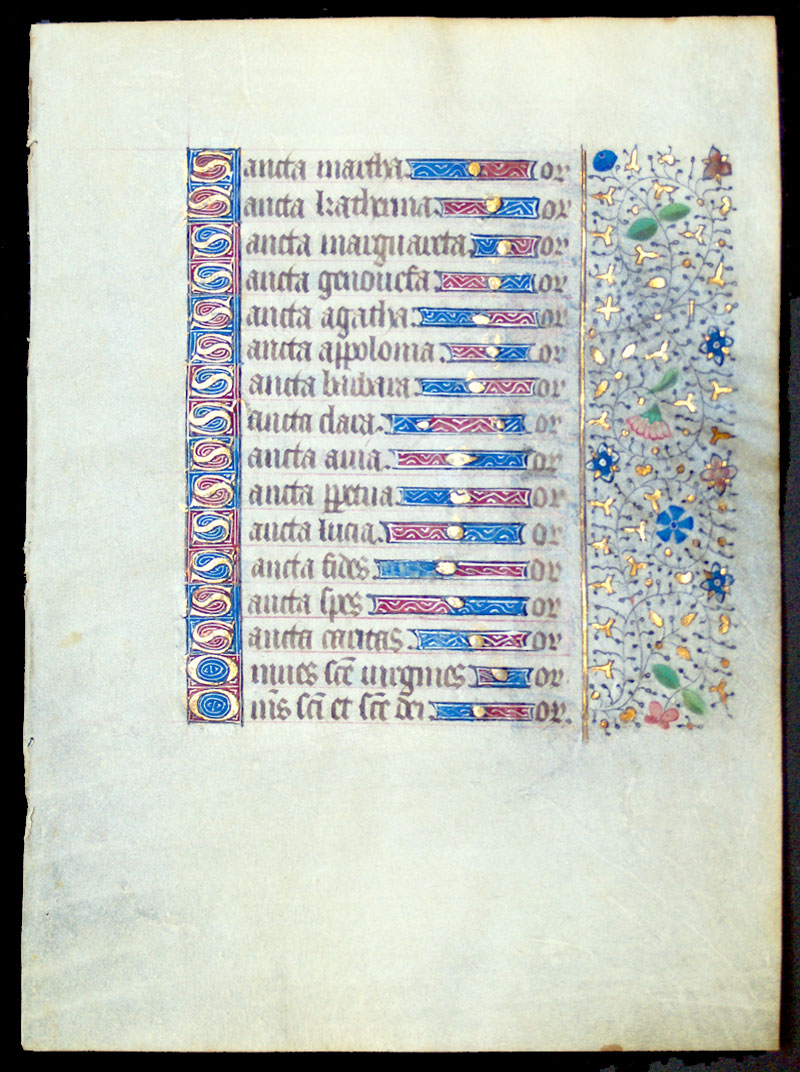 Sancta martha or
Sancta katherina or
Sancta marguareta or
Sancta genouefa or
Sancta agatha or
Sancta appolonia or
Sancta barbara or
Sancta clara or
Sancta anna or
Sancta ꝑpetua or
Sancta lucia or
Sancta fides or
Sancta spes or
Sancta caritas or
Omnes scē virgines or
Om̄s scī et scē dei or.